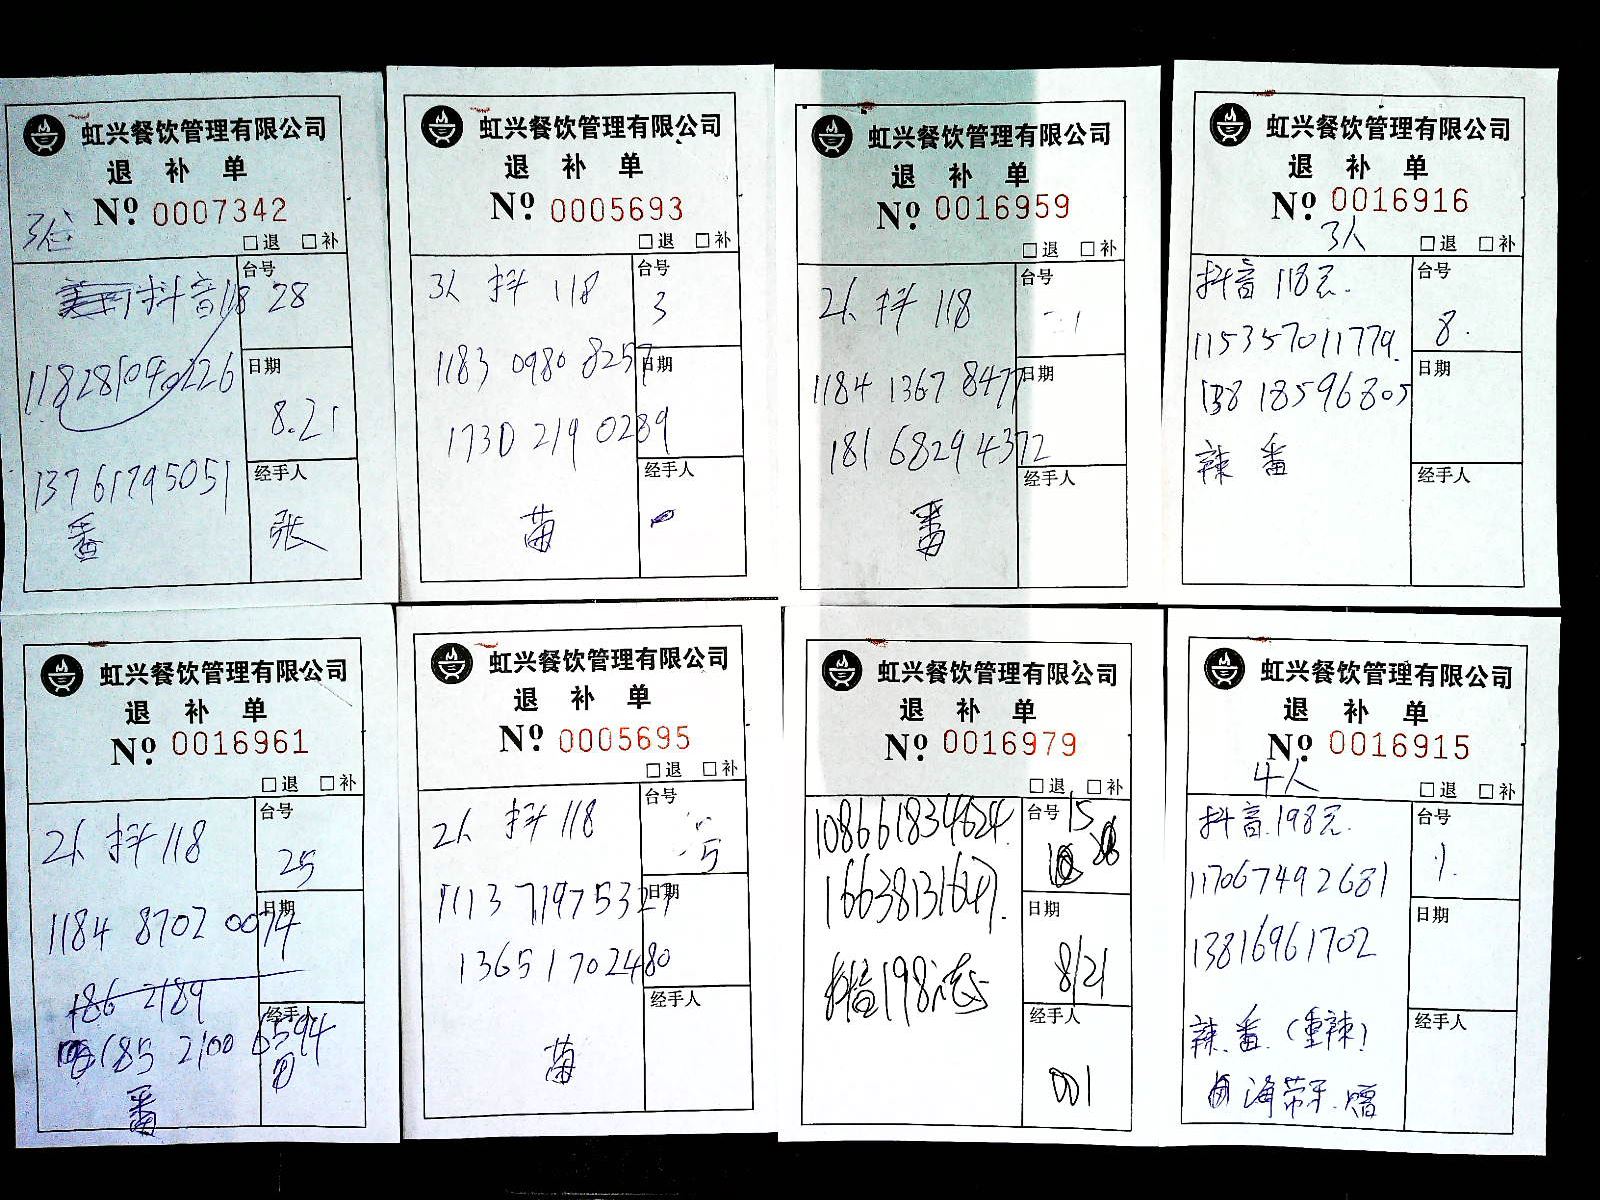 虹兴餐饮管理有限公司
退 补 单
Nº 0007342
3位
□退 □补
抖音118
台号
28
118281040226
日期
8.21
13761795051
番
经手人
张
虹兴餐饮管理有限公司
退 补 单
Nº 0005693
□退 □补
3人 抖 118
台号
3
1183 0980 8257
日期
1730 219 0289
经手人
虹兴餐饮管理有限公司
退 补 单
Nº 0016959
□退 □补
2人 抖 118
台号
1184 1367 8477
日期
181 6829 4372
经手人
番
虹兴餐饮管理有限公司
退 补 单
Nº 0016916
3人
□退 □补
抖音 118元.
台号
8.
115357011779.
日期
138 18596805
辣 番
经手人
虹兴餐饮管理有限公司
退 补 单
Nº 0016961
□退 □补
2人 抖 118
台号
25
1184 8702 0074
日期
186 2189
经手人
185 2100 6594
番
虹兴餐饮管理有限公司
退 补 单
Nº 0005695
□退 □补
2人 抖 118
台号
5
1113 71975327
日期
1365 1702480
经手人
虹兴餐饮管理有限公司
退 补 单
Nº 0016979
□退 □补
108661834624
台号
15
16638131647.
日期
8/21
抖音198
经手人
001
虹兴餐饮管理有限公司
退 补 单
Nº 0016915
4人
□退 □补
抖音.198元.
台号
1.
117067492681
日期
13816961702
经手人
辣.番.(重辣)
海带牙.